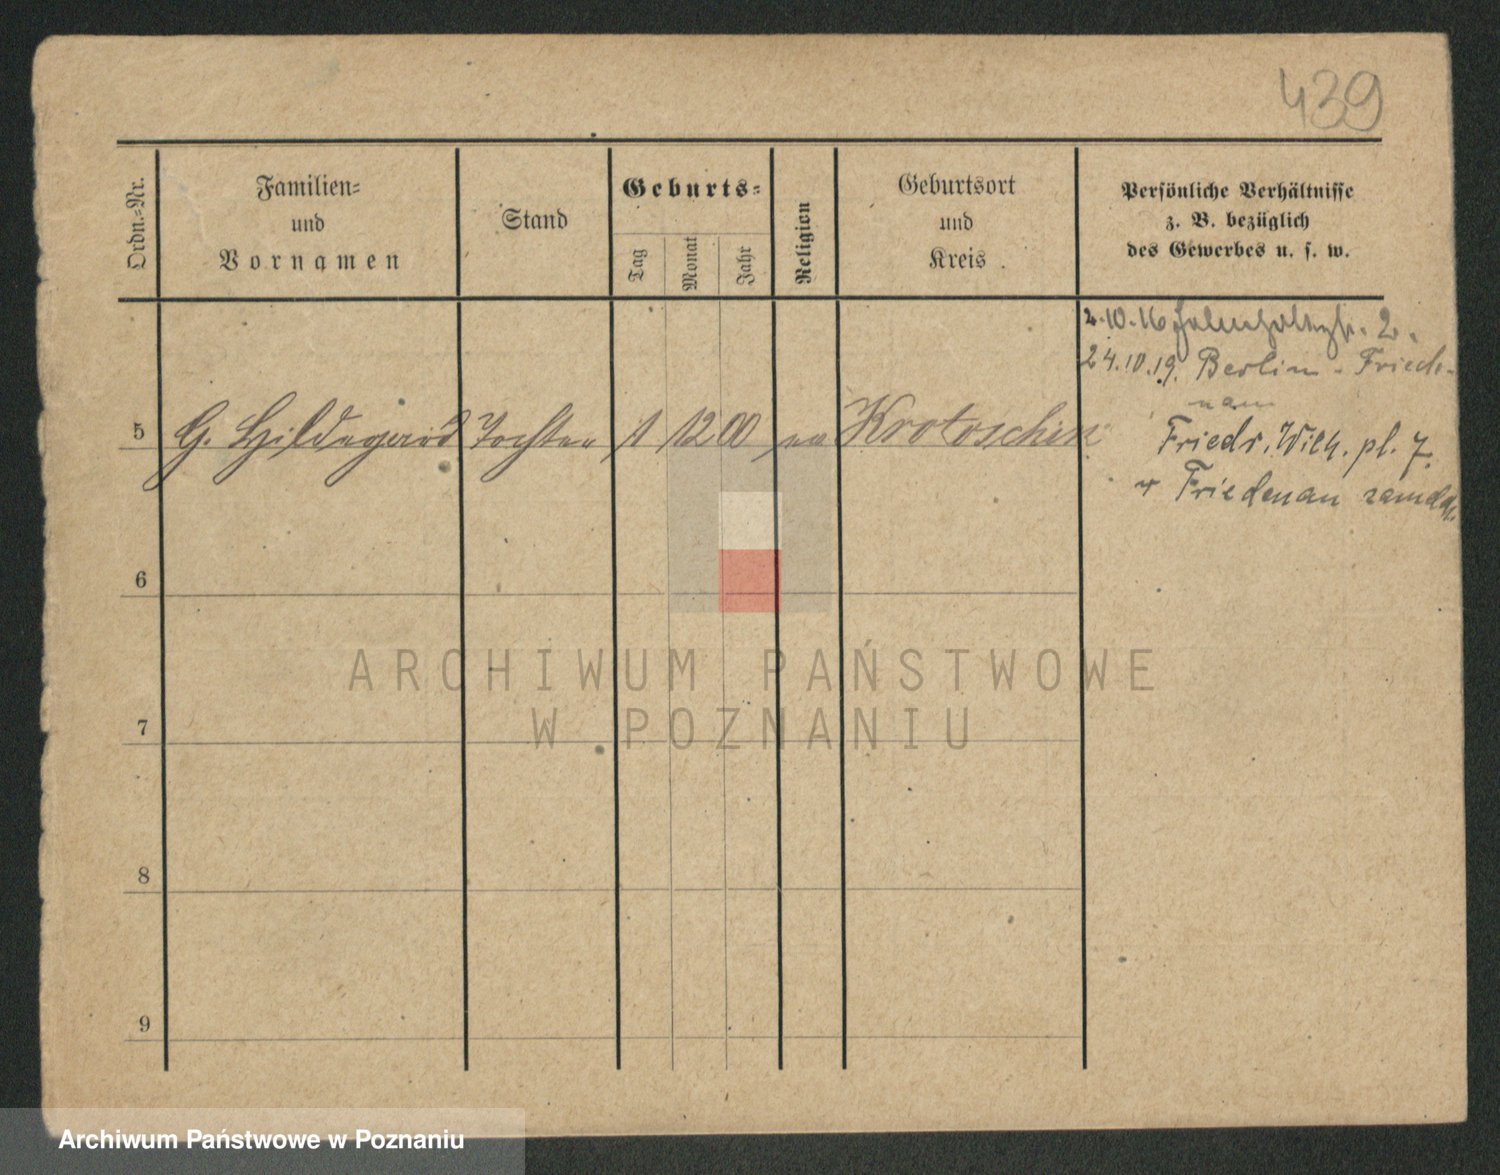 439
Ordn.=Nr.
Familien=
und
Vornamen
Stand
Geburts=
Tag
Monat
Jahr
Religion
Geburtsort
und
Kreis
Persönliche Verhältnisse
z. B. bezüglich
des Gewerbes u. s. w.
2.10.16 2.
24.10.19. Berlin - Friede-
nau
5 G. Hildegard Tochter 1 12 00 ev Krotoschin
Friedr. Wilh. pl. 7.
Friedenau
6
7
8
9
ARCHIWUM PAŃSTWOWE
W POZNANIU
Archiwum Państwowe w Poznaniu